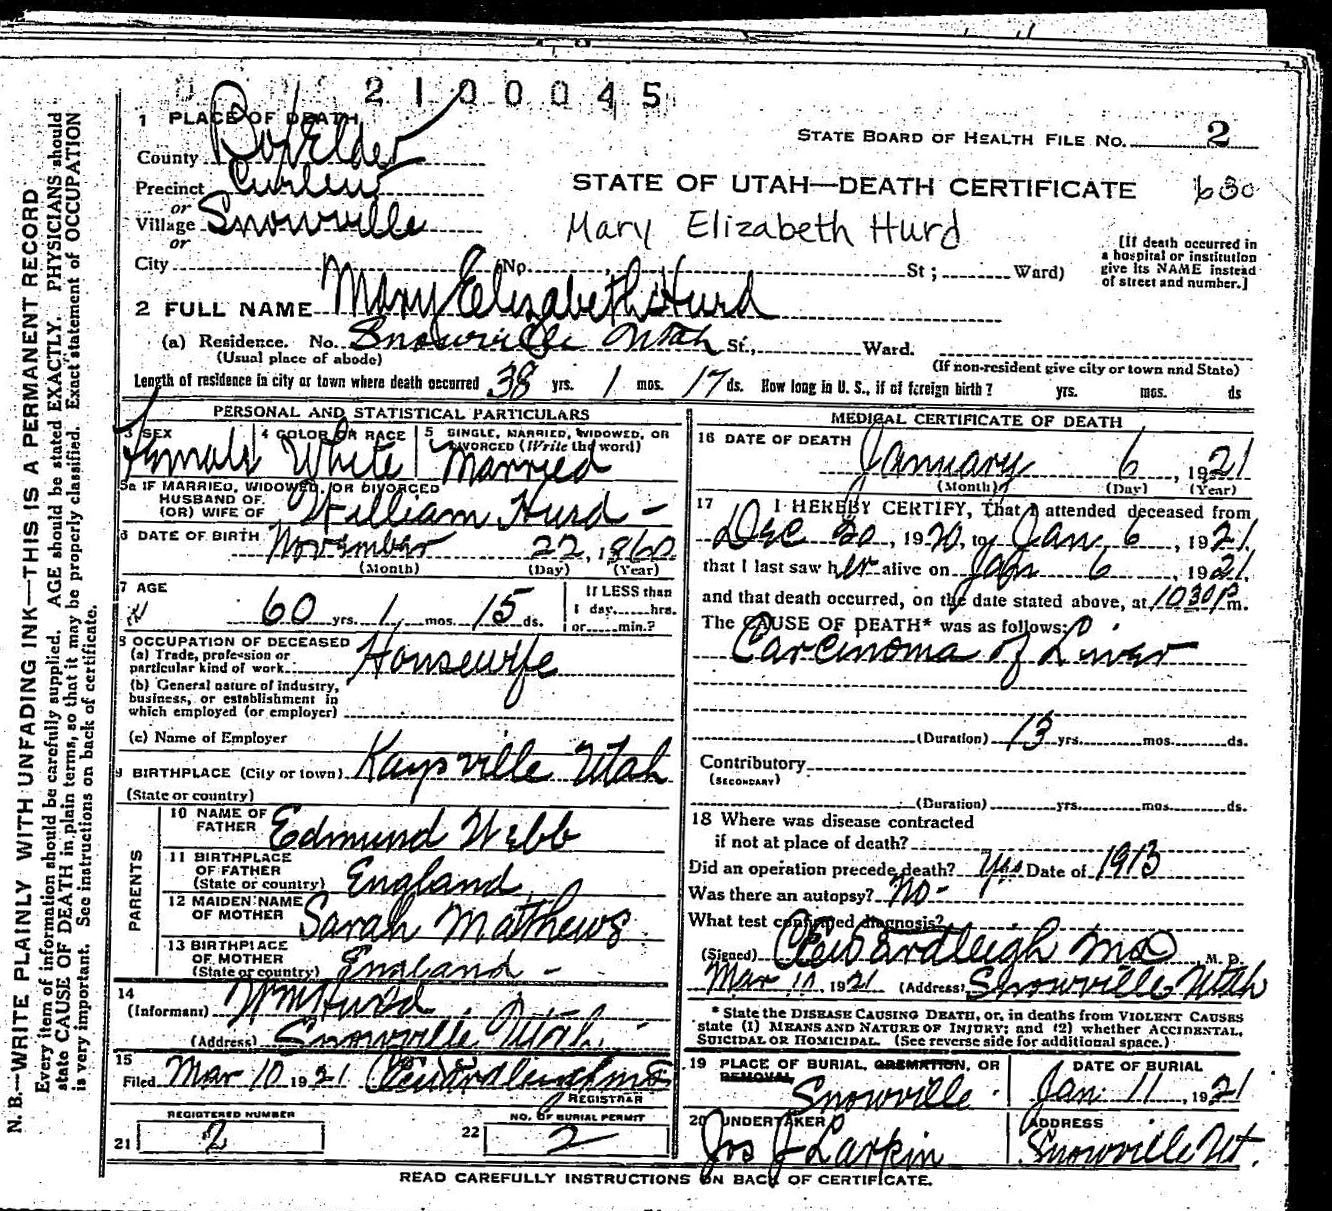 2100045
1 PLACE OF DEATH
STATE BOARD OF HEALTH FILE NO. 2
County Box Elder
Precinct Curlew
STATE OF UTAH—DEATH CERTIFICATE 630
or
Village Snowville
Mary Elizabeth Hurd
or
[If death occurred in
a hospital or institution
give its NAME instead
of street and number.]
City No. St; Ward)
2 FULL NAME Mary Elizabeth Hurd
(a) Residence. No. Snowville Utah St., Ward.
(Usual place of abode) (If non-resident give city or town and State)
Length of residence in city or town where death occurred 38 yrs. 1 mos. 17 ds. How long in U. S., if of foreign birth? yrs. mos. ds
PERSONAL AND STATISTICAL PARTICULARS
3 SEX 4 COLOR OR RACE 5 SINGLE, MARRIED, WIDOWED, OR
DIVORCED (Write the word)
Female White Married
5a IF MARRIED, WIDOWED, OR DIVORCED
HUSBAND OF
(OR) WIFE OF William Hurd -
6 DATE OF BIRTH November 22, 1860
(Month) (Day) (Year)
7 AGE
60 yrs. 1 mos. 15 ds.
If LESS than
1 day, hrs.
or min.?
8 OCCUPATION OF DECEASED
(a) Trade, profession or
particular kind of work Housewife
(b) General nature of industry,
business, or establishment in
which employed (or employer)
(c) Name of Employer
9 BIRTHPLACE (City or town) Kaysville Utah
(State or country)
PARENTS
10 NAME OF
FATHER Edmund Webb
11 BIRTHPLACE
OF FATHER
(State or country) England
12 MAIDEN NAME
OF MOTHER Sarah Mathews
13 BIRTHPLACE
OF MOTHER
(State or country) England -
14
(Informant) Wm Hurd
(Address) Snowville Utah
15
Filed Mar 10 1921
REGISTRAR
REGISTERED NUMBER NO. OF BURIAL PERMIT
21 2 22 2
MEDICAL CERTIFICATE OF DEATH
16 DATE OF DEATH
January 6, 1921
(Month) (Day) (Year)
17 I HEREBY CERTIFY, That I attended deceased from
Dec 20, 1920, to Jan 6, 1921
that I last saw her alive on Jan 6, 1921
and that death occurred, on the date stated above, at 1030 P m.
The CAUSE OF DEATH* was as follows:
Carcinoma of Liver
(Duration) 13 yrs. mos. ds.
Contributory
(SECONDARY)
(Duration) yrs. mos. ds.
18 Where was disease contracted
if not at place of death?
Did an operation precede death? Yes Date of 1913
Was there an autopsy? No -
What test confirmed diagnosis?
(Signed) M. D.
Mar 10, 1921 (Address) Snowville Utah
* State the DISEASE CAUSING DEATH, or, in deaths from VIOLENT CAUSES
state (1) MEANS AND NATURE OF INJURY; and (2) whether ACCIDENTAL,
SUICIDAL OR HOMICIDAL. (See reverse side for additional space.)
19 PLACE OF BURIAL, CREMATION, OR
REMOVAL
Snowville
DATE OF BURIAL
Jan. 11, 1921
20 UNDERTAKER
Jos J Larkin
ADDRESS
Snowville Ut.
READ CAREFULLY INSTRUCTIONS ON BACK OF CERTIFICATE.
N. B.—WRITE PLAINLY WITH UNFADING INK—THIS IS A PERMANENT RECORD
Every item of information should be carefully supplied. AGE should be stated EXACTLY. PHYSICIANS should
state CAUSE OF DEATH in plain terms, so that it may be properly classified. Exact statement of OCCUPATION
is very important. See instructions on back of certificate.